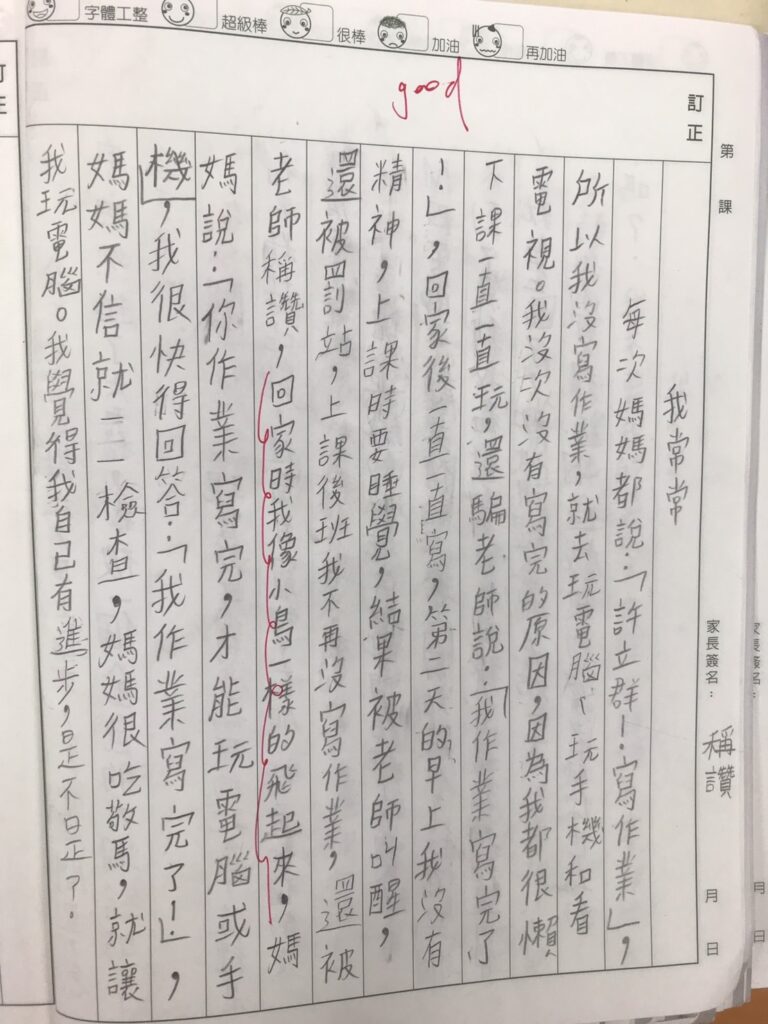 字體工整
超級棒
很棒
加油
再加油
第 課
訂正
good
家長簽名：
稱讚
月 日
我常常
每次媽媽都說：「許立群！寫作業」，
所以我沒寫作業，就去玩電腦、玩手機和看
電視。我沒次沒有寫完的原因，因為我都很懶
下課一直一直玩，還騙老師說：「我作業寫完了
！」，回家後一直一直寫，第二天的早上我沒有
精神，上課時要睡覺，結果被老師叫醒，
還被罰站，上課後班我不再沒寫作業，還被
老師稱讚，回家時我像小鳥一樣的飛起來，媽
媽說：「你作業寫完，才能玩電腦或手
機」，我很快得回答：「我作業寫完了！」，
媽媽不信就一一檢查，媽媽很吃驚，就讓
我玩電腦。我覺得我自己有進步，是不是？